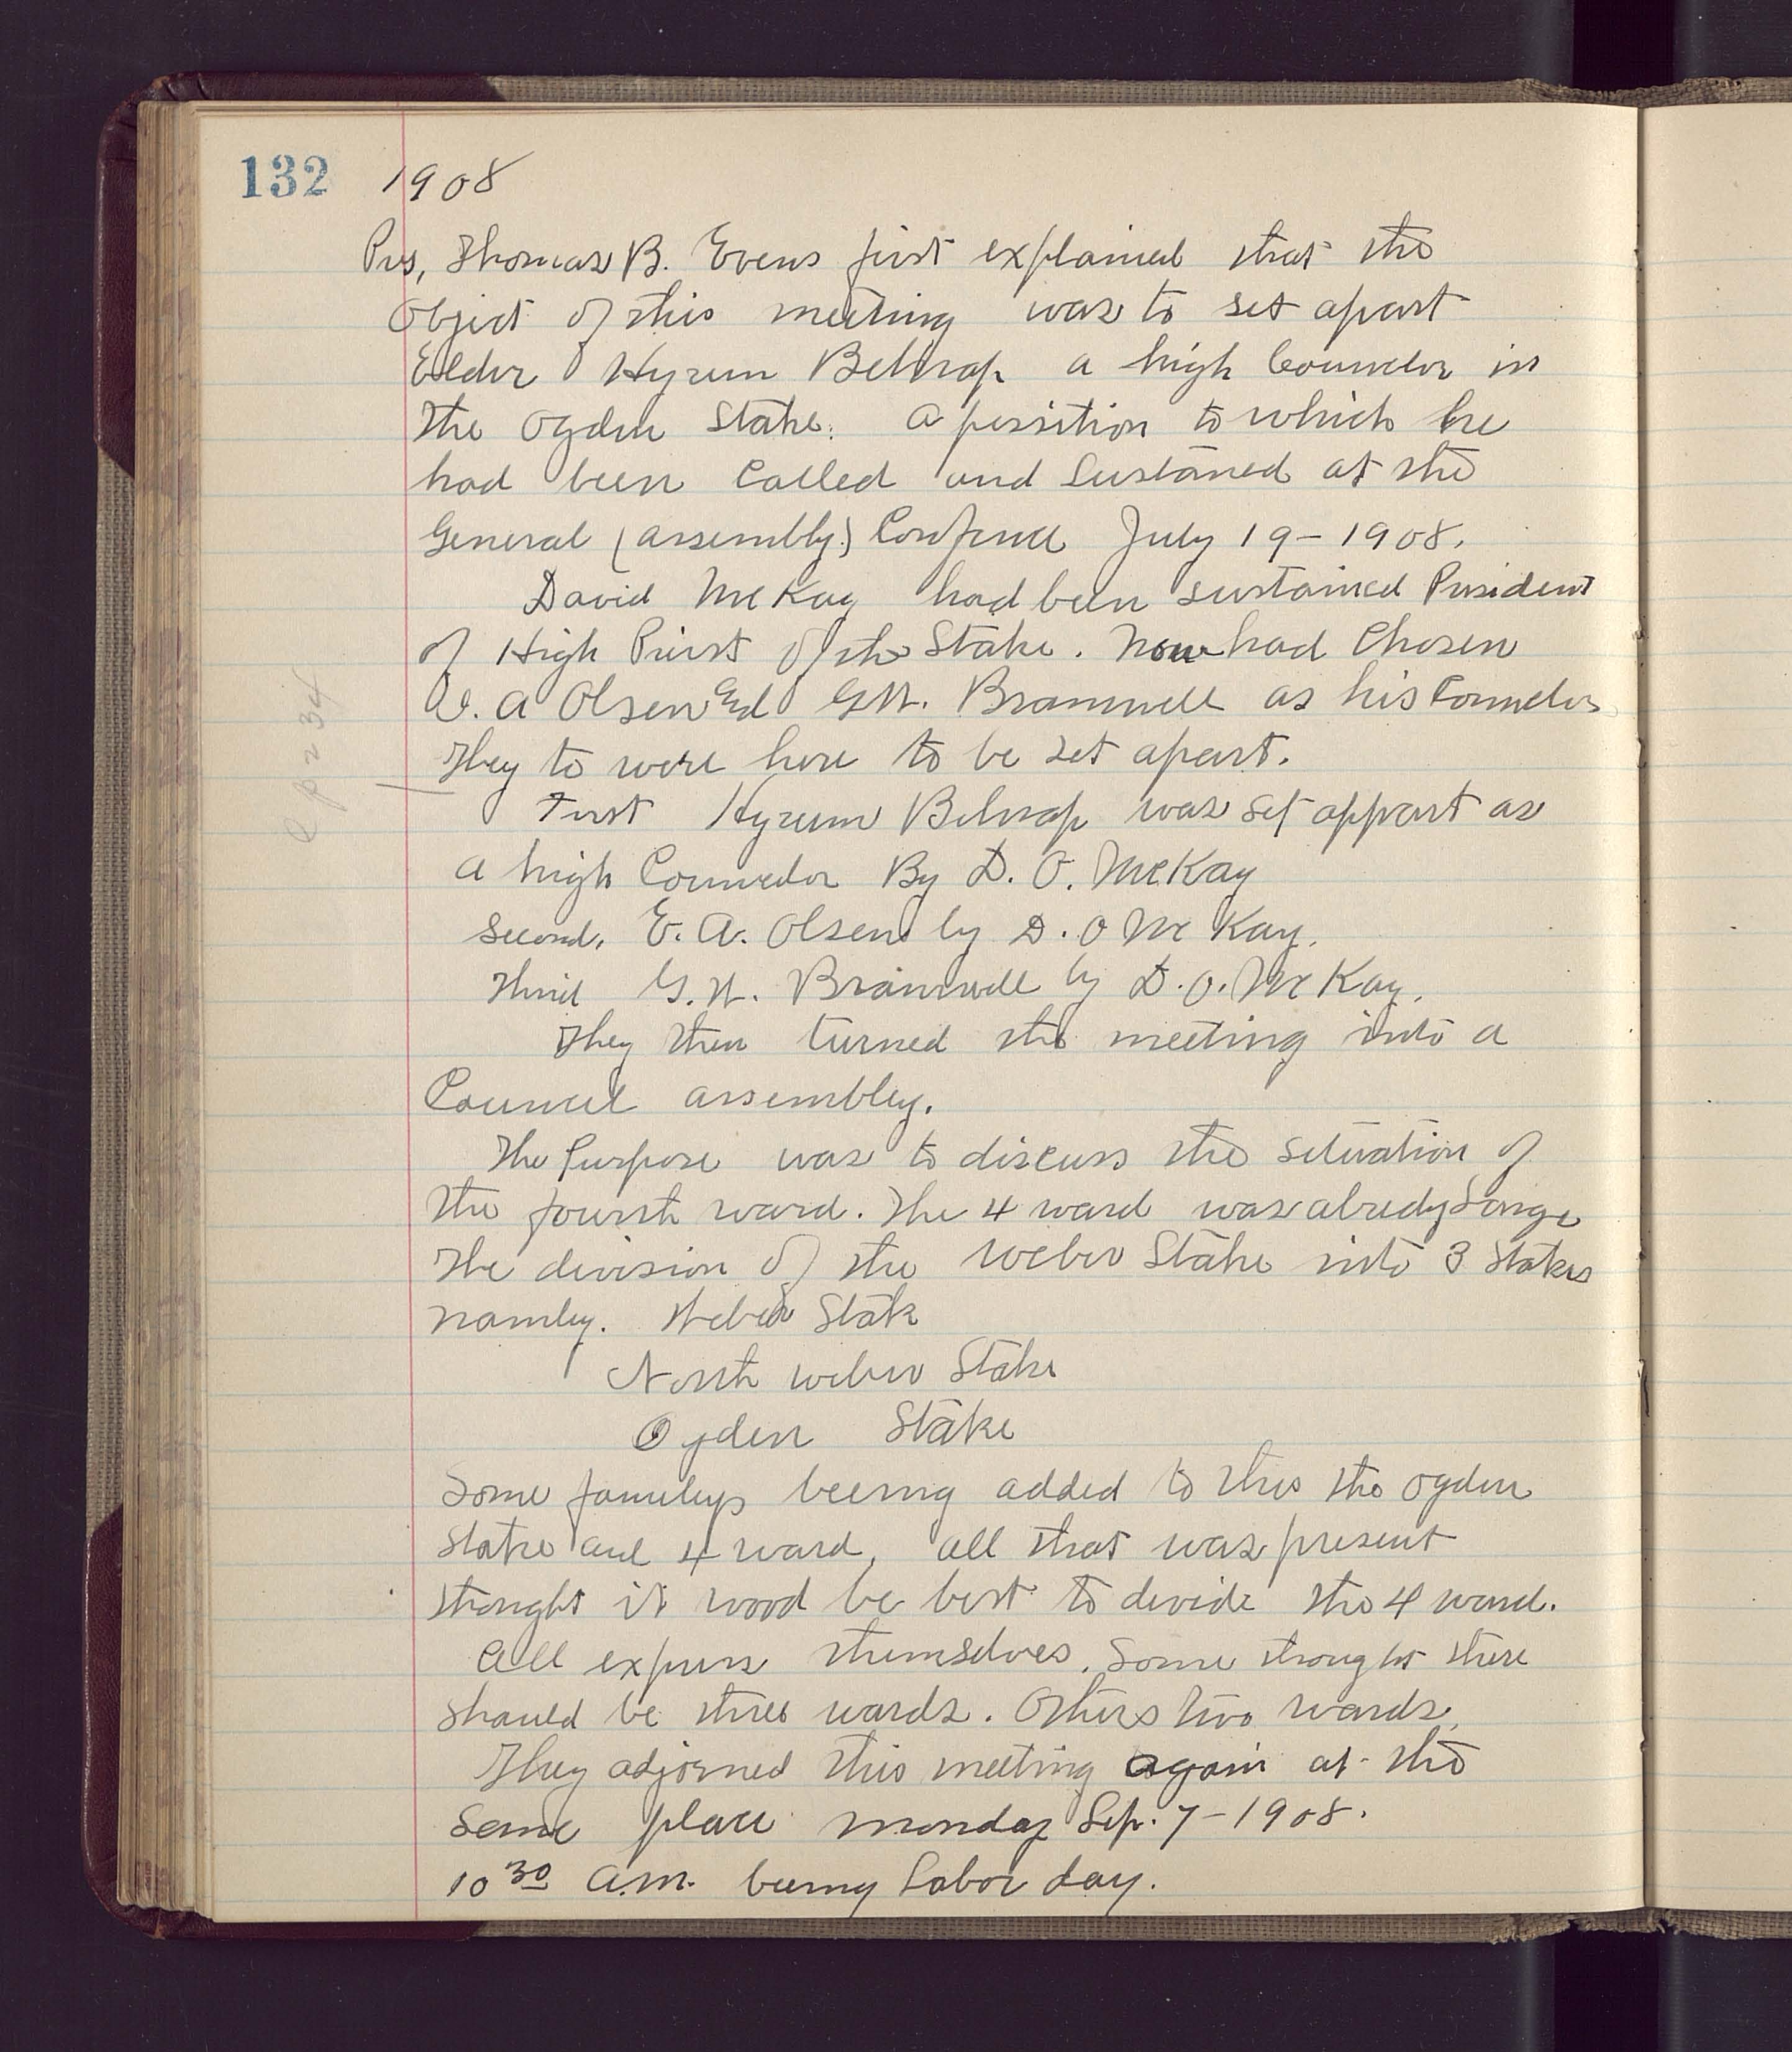 132 1908
Pres, Thomas B. Evens first explained that the
object of this meeting was to set apart
Elder Hyrum Belnap a high Councelor in
the Ogden Stake. a possition to which he
had been Called and Sustaned at the
General (assembly) Confrence July 19-1908.
David McKay had been sustained President
of High Priest of the Stake. Now had Chosen
E. A Olsen and G.W. Bramwell as his Councelors
They to were here to be set apart.
First Hyrum Belnap was set appart as
a high Councelor By D. O. McKay
second, E. A. Olsen by D. O McKay.
Third G. W. Bramwell by D. O. McKay.
They then turned the meeting into a
Council assembly.
The Purpose was to discuss the setuation of
the fourth ward. The 4 ward was alredy Large
The division of the Weber Stake into 3 Stakes
namley. Weber Stake
North Weber Stake
Ogden Stake
Some fameleys beeing added to this the Ogden
Stake and 4 ward, all that was present
thought it wood be best to devide the 4 ward.
All express themselves. Some thought there
should be three wards. Others two wards.
They adjorned this meeting again at the
same place monday Sep. 7-1908.
10 30 a.m. beeing Labor day.
e p 234